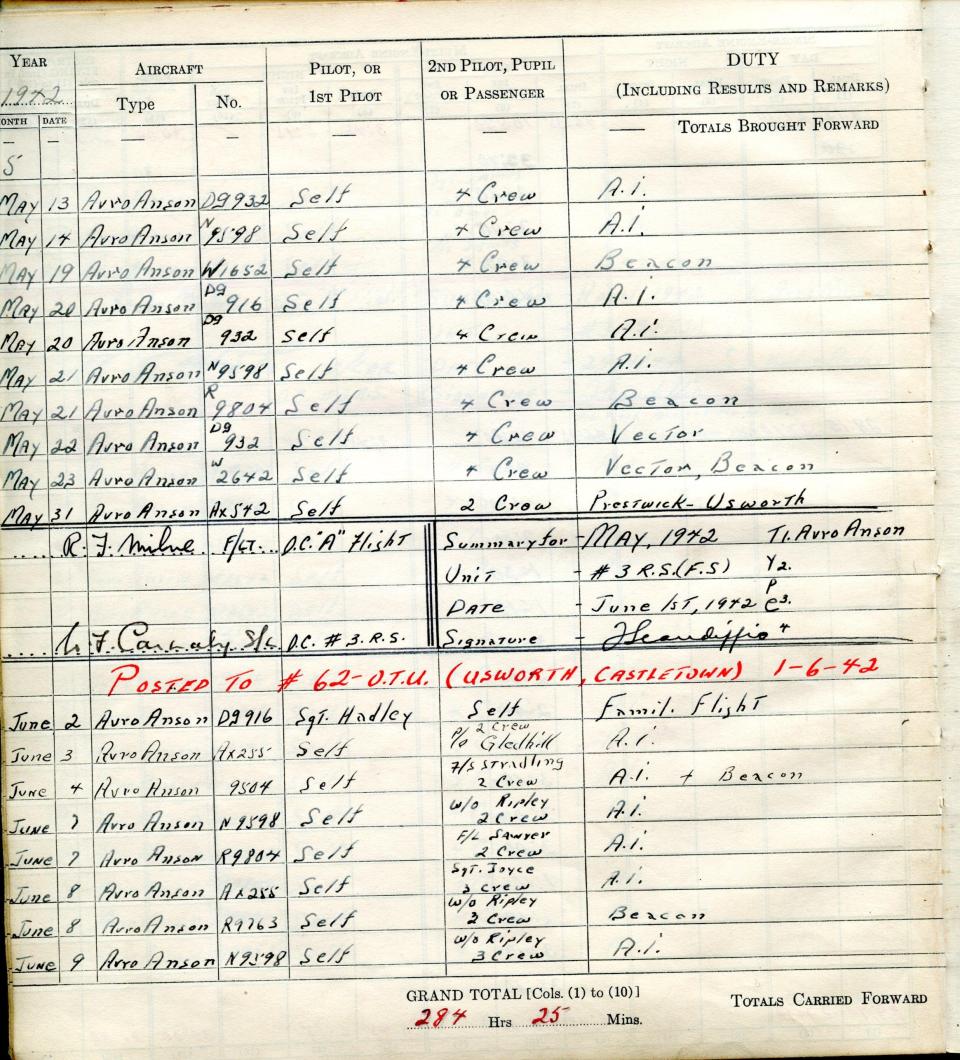 YEAR AIRCRAFT PILOT, OR 2ND PILOT, PUPIL DUTY
1942 Type No. 1ST PILOT OR PASSENGER (INCLUDING RESULTS AND REMARKS)
ONTH DATE
— — — — — — — TOTALS BROUGHT FORWARD
5
MAY 13 Avro Anson DG932 Self 4 Crew A.i.
MAY 14 Avro Anson N9598 Self 4 Crew A.i.
MAY 19 Avro Anson W1652 Self 4 Crew Beacon
MAY 20 Avro Anson DG916 Self 4 Crew A.i.
MAY 20 Avro Anson DG932 Self 4 Crew A.i.
MAY 21 Avro Anson N9598 Self 4 Crew A.i.
MAY 21 Avro Anson R9804 Self 4 Crew Beacon
MAY 22 Avro Anson DG932 Self 4 Crew Vector
MAY 23 Avro Anson W2642 Self 4 Crew Vector, Beacon
MAY 31 Avro Anson AX542 Self 2 Crew Prestwick-Usworth
R. F. Milne F/LT. O.C. "A" Flight Summary for - MAY, 1942 T1. Avro Anson
Unit - # 3 R.S.(F.S) Y2.
DATE - June 1ST, 1942 P e3.
F. S/L O.C. # 3. R.S. Signature - 4
POSTED TO # 62-O.T.U. (USWORTH, CASTLETOWN) 1-6-42
June 2 Avro Anson DG916 Sgt. Hadley Self Famil. Flight
2 Crew
June 3 Avro Anson AX255 Self P/o Gledhill A.i.
F/S Stradling
June 4 Avro Anson 9504 Self 2 Crew A.i. + Beacon
W/O Ripley
June 7 Avro Anson N9598 Self 2 Crew A.i.
F/L Sawyer
June 7 Avro Anson R9804 Self 2 Crew A.i.
Sgt. Joyce
June 8 Avro Anson AX255 Self 3 Crew A.i.
W/O Ripley
June 8 Avro Anson R9763 Self 3 Crew Beacon
W/O Ripley
June 9 Avro Anson N9598 Self 3 Crew A.i.
GRAND TOTAL [Cols. (1) to (10)] TOTALS CARRIED FORWARD
284 Hrs 25 Mins.